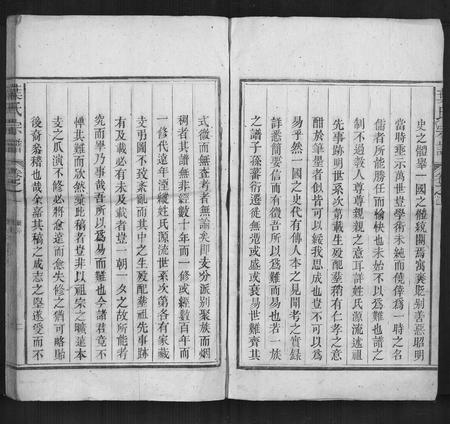 史之體舉一國之體統關焉寓褒貶別善惡昭明
當時垂示萬世豈學術未純而僥倖為一時之名
儒者所能勝任而愉快也未始不以為難也譜之
制不過敦人尊尊親親之意耳詳姓氏源流述祖
先事跡明世系次第載生殁配塟稍有仁孝之意
酣於筆墨者似皆可以綏我思成也豈不可以為
易乎然一國之史代有傳人本之見聞考之實錄
詳悉簡要信而有徵吾所以為難而易也若一族
之譜子孫蕃衍遷徙無嘗或盛或衰易世難齊其
式微而無查考者無論矣即支分派別聚族而烟
稠者其譜無非經數十年而一修或經數百年而
一修代遠年湮縱姓氏源流世系次第各有家藏
支弔圖不致紊亂而其中之生殁配塟祖先事跡
有及載必有未及載者豈一朝一夕之故所能者
究而舉乃事哉吾所以為易而難也今諸君竟不
憚其難而欣然棗此稿者豈非以祖宗之職遠本
支之瓜演不修必將愈遠而愈失修之猶可畧貽
後裔參稽也哉余嘉其稿之成志之堅遂受而不
葉氏宗譜
卷之